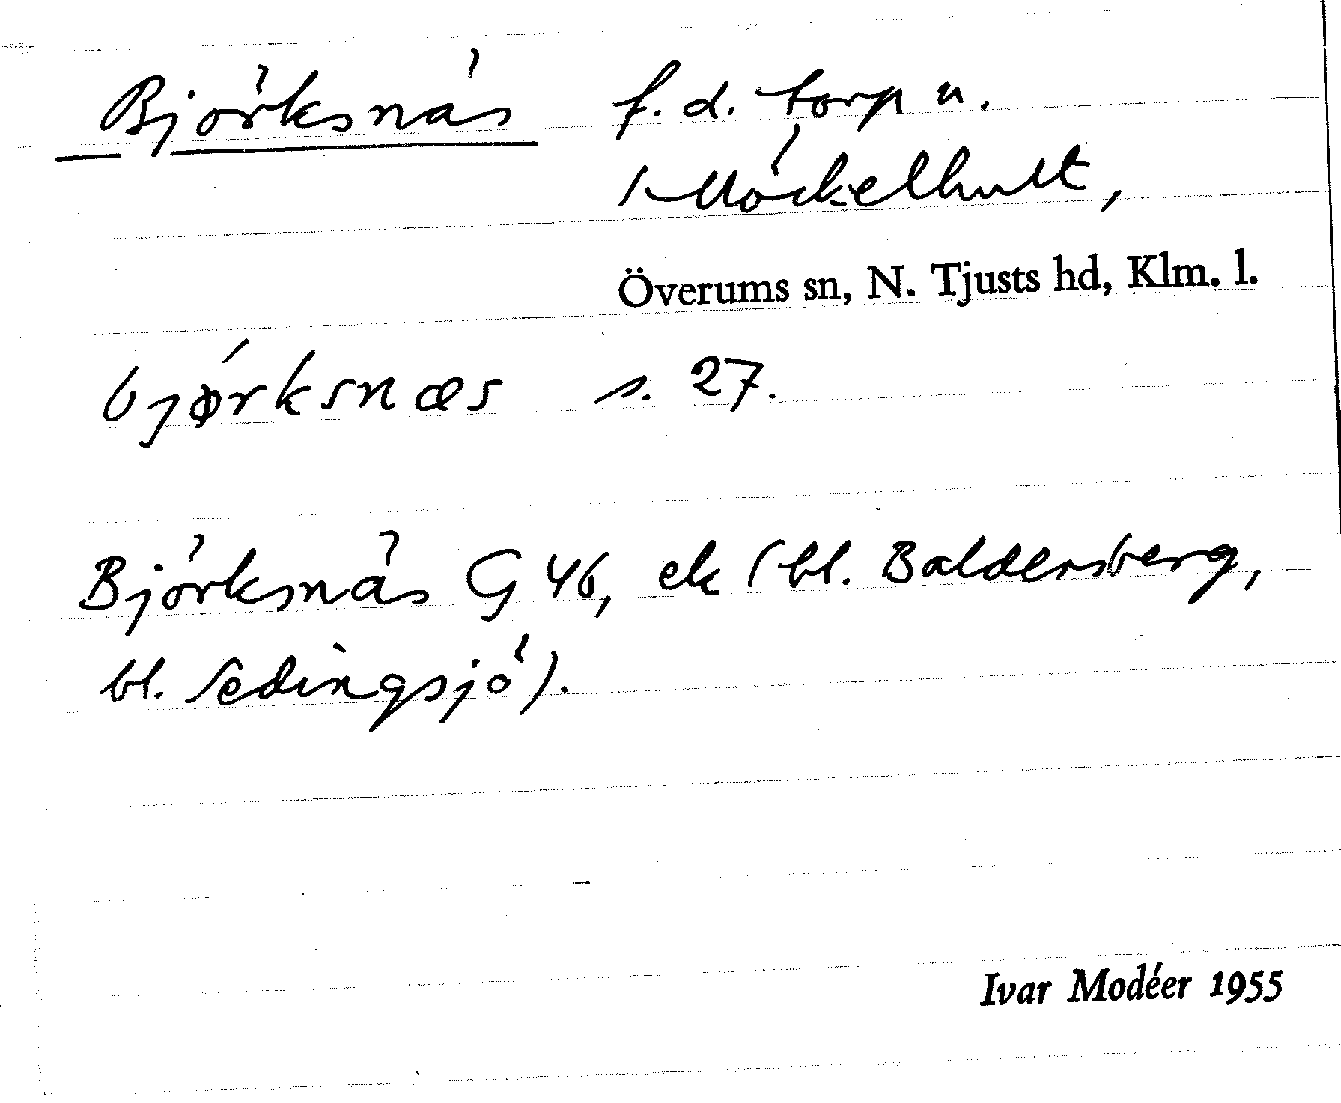 Björksnäs f. d. torp u.
Möckelhult,
Överums sn, N. Tjusts hd, Klm. l.
bjørksnæs s. 27.
Björksnäs G 46, ek (bl. Baldersberg,
bl. Sedingsjö).
Ivar Modéer 1955